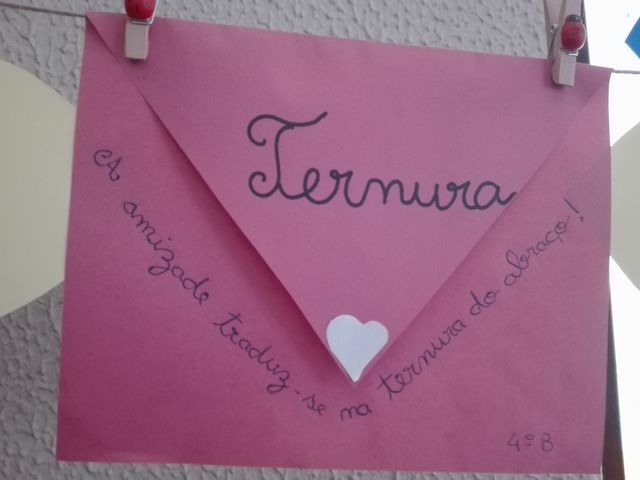 Ternura
A amizade traduz-se na ternura do abraço!
4º B